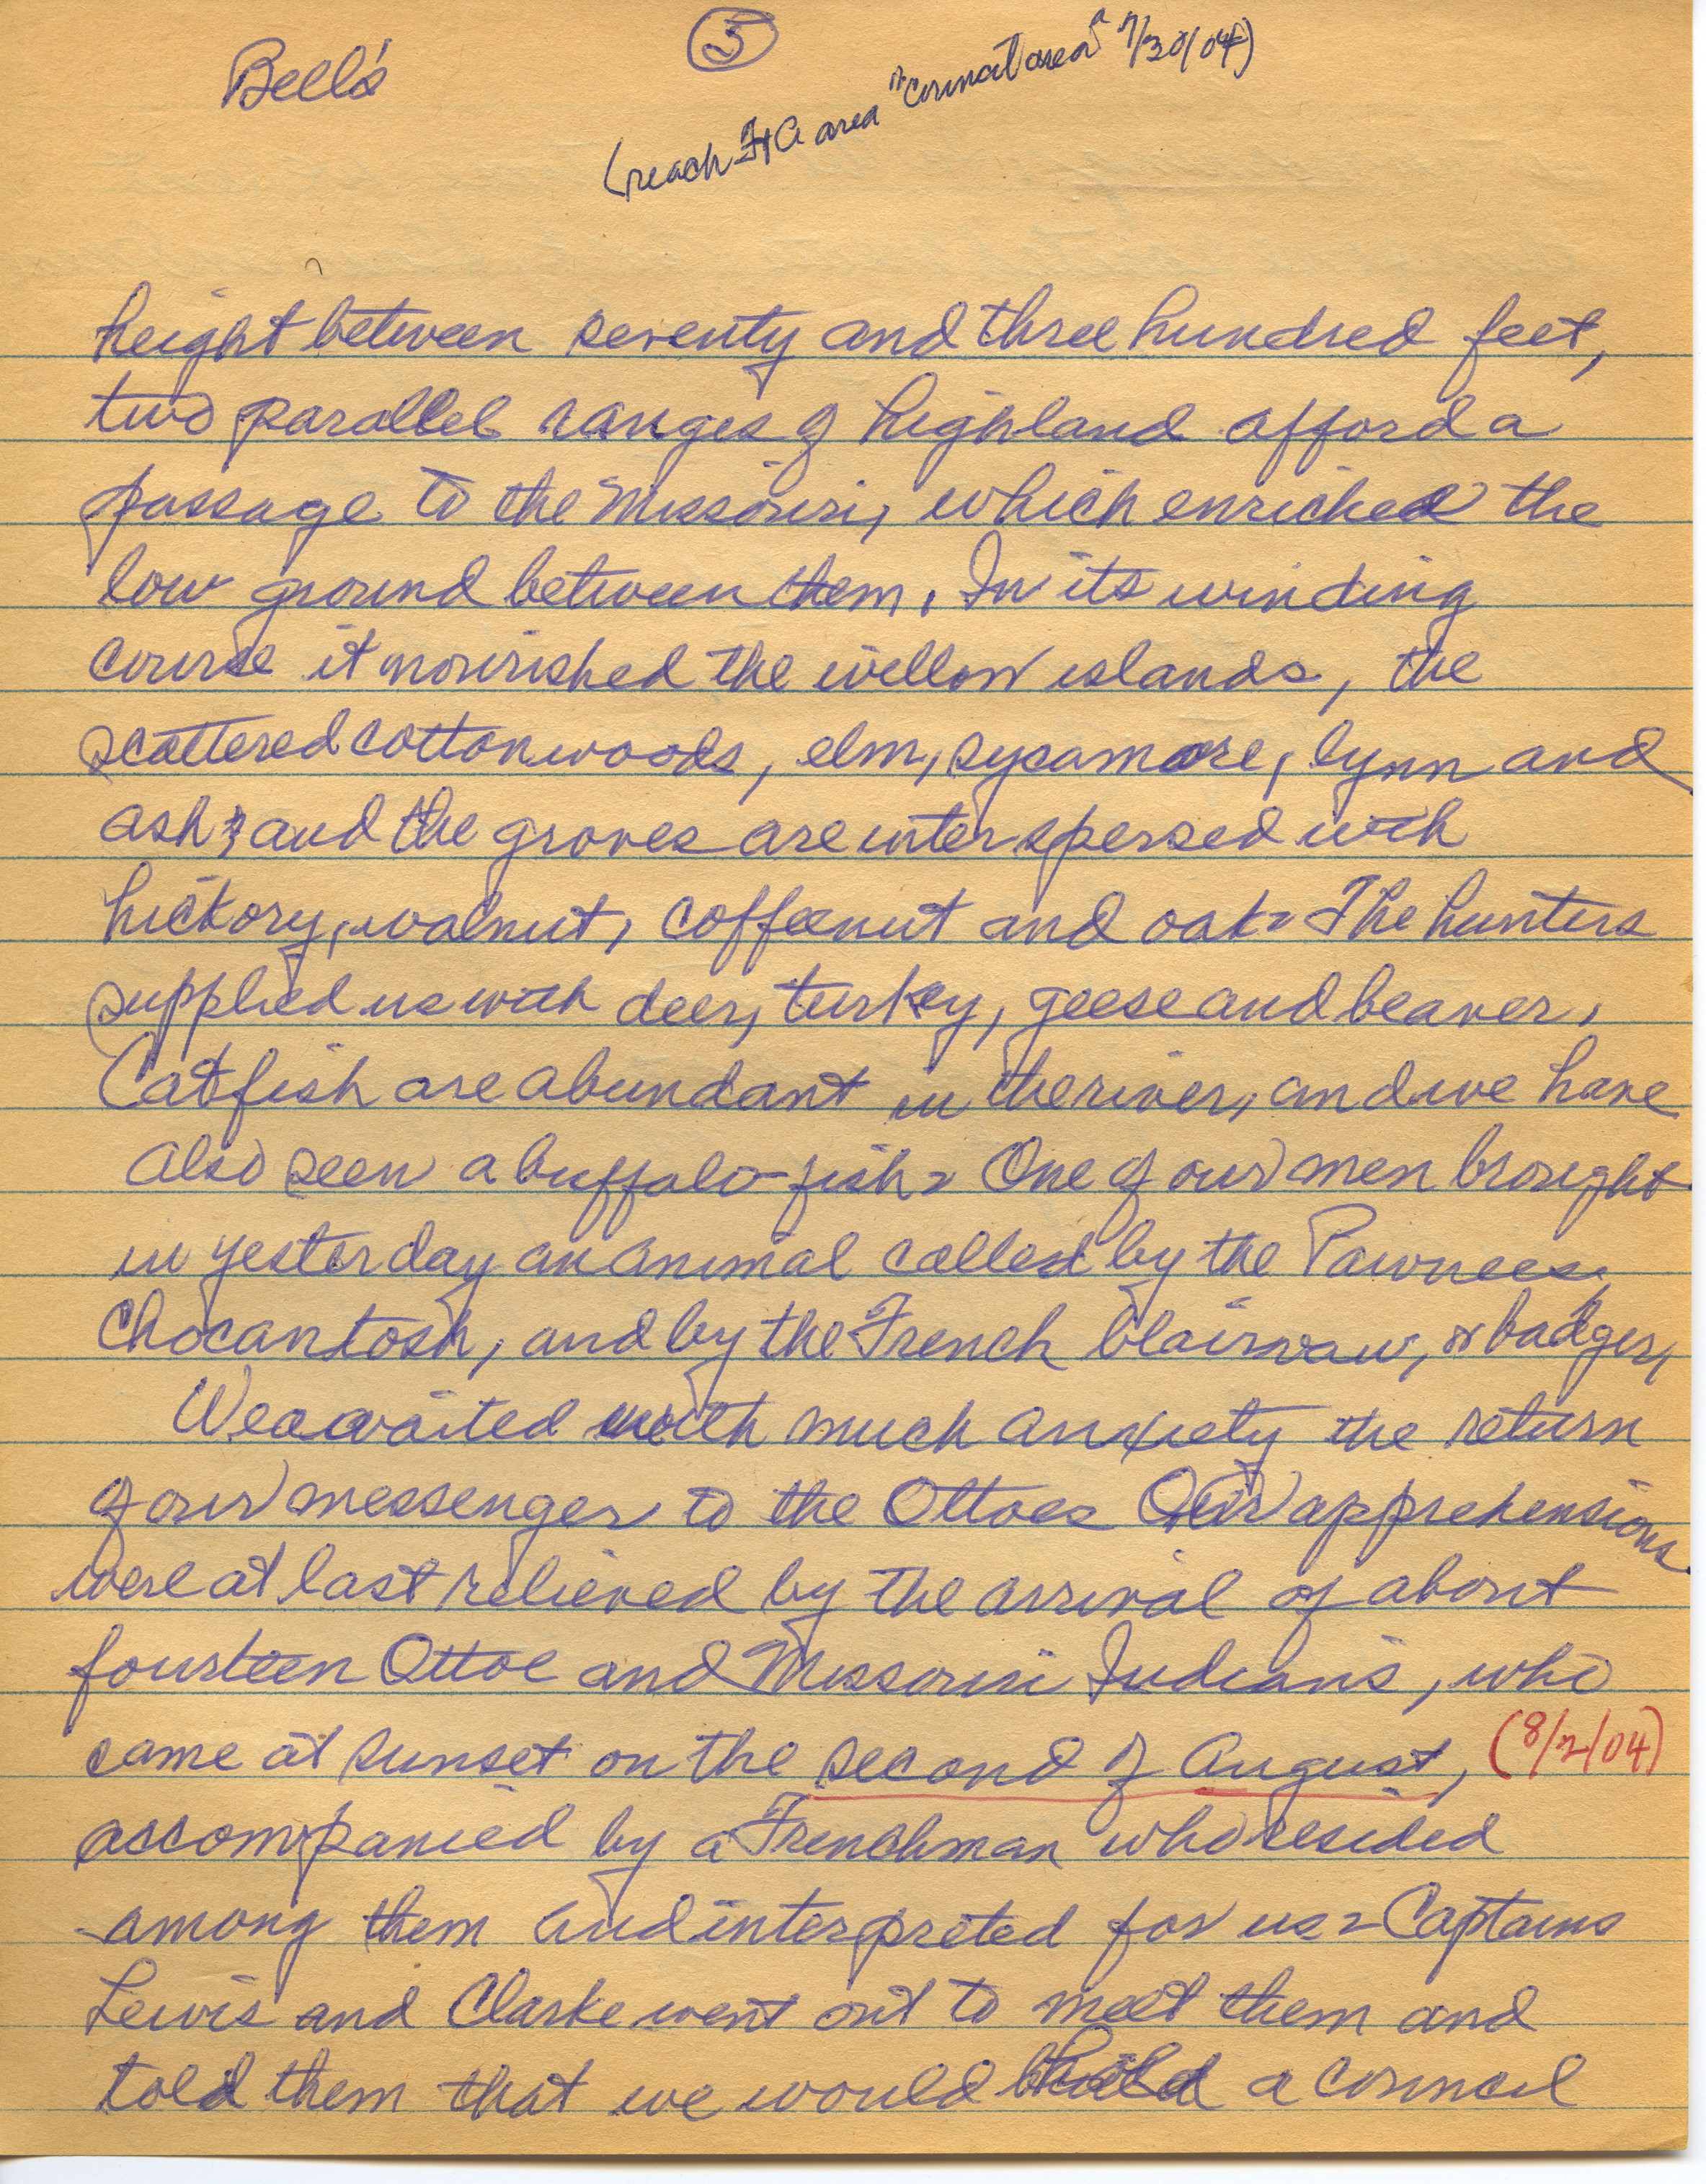 Bell's
5
(reach Ft C area "council area" 7/30/04)
height between seventy and three hundred feet,
two parallel ranges of highland afford a
passage to the Missouri, which enriched the
low ground between them. In its winding
course it nourished the willow islands, the
scattered cottonwoods, elm, sycamore, lynn and
ash; and the groves are interspersed with
hickory, walnut, coffeenut and oak. The hunters
supplied us with deer, turkey, geese and beaver.
Catfish are abundant in the river, and we have
also seen a buffalo-fish. One of our men brought
in yesterday an animal called by the Pawnees,
Chocantosh, and by the French blairoau, or badger,
We awaited with much anxiety the return
of our messenger to the Ottoes Our apprehensions
were at last relieved by the arrival of about
fourteen Ottoe and Missouri Indians, who
came at sunset on the second of August, (8/2/04)
accompanied by a Frenchman who resided
among them and interpreted for us. Captains
Lewis and Clarke went out to meet them and
told them that we would hold a council